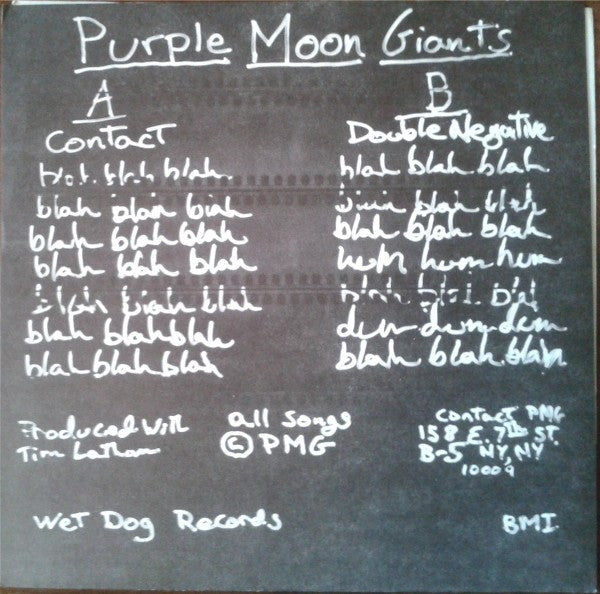 Purple Moon Giants
A
Contact
blah blah blah
blah blah blah
blah blah blah
blah blah blah
blah blah blah
blah blah blah
blah blah blah
B
Double Negative
blah blah blah
blah blah
blah blah blah
hum hum hum
blah blah bla
dum-dum-dum
blah blah blah
Produced With
Tim Latham
all songs
© PMG
Contact PMG
158 E. 7th ST.
B-5 NY, NY
10009
Wet Dog Records
BMI